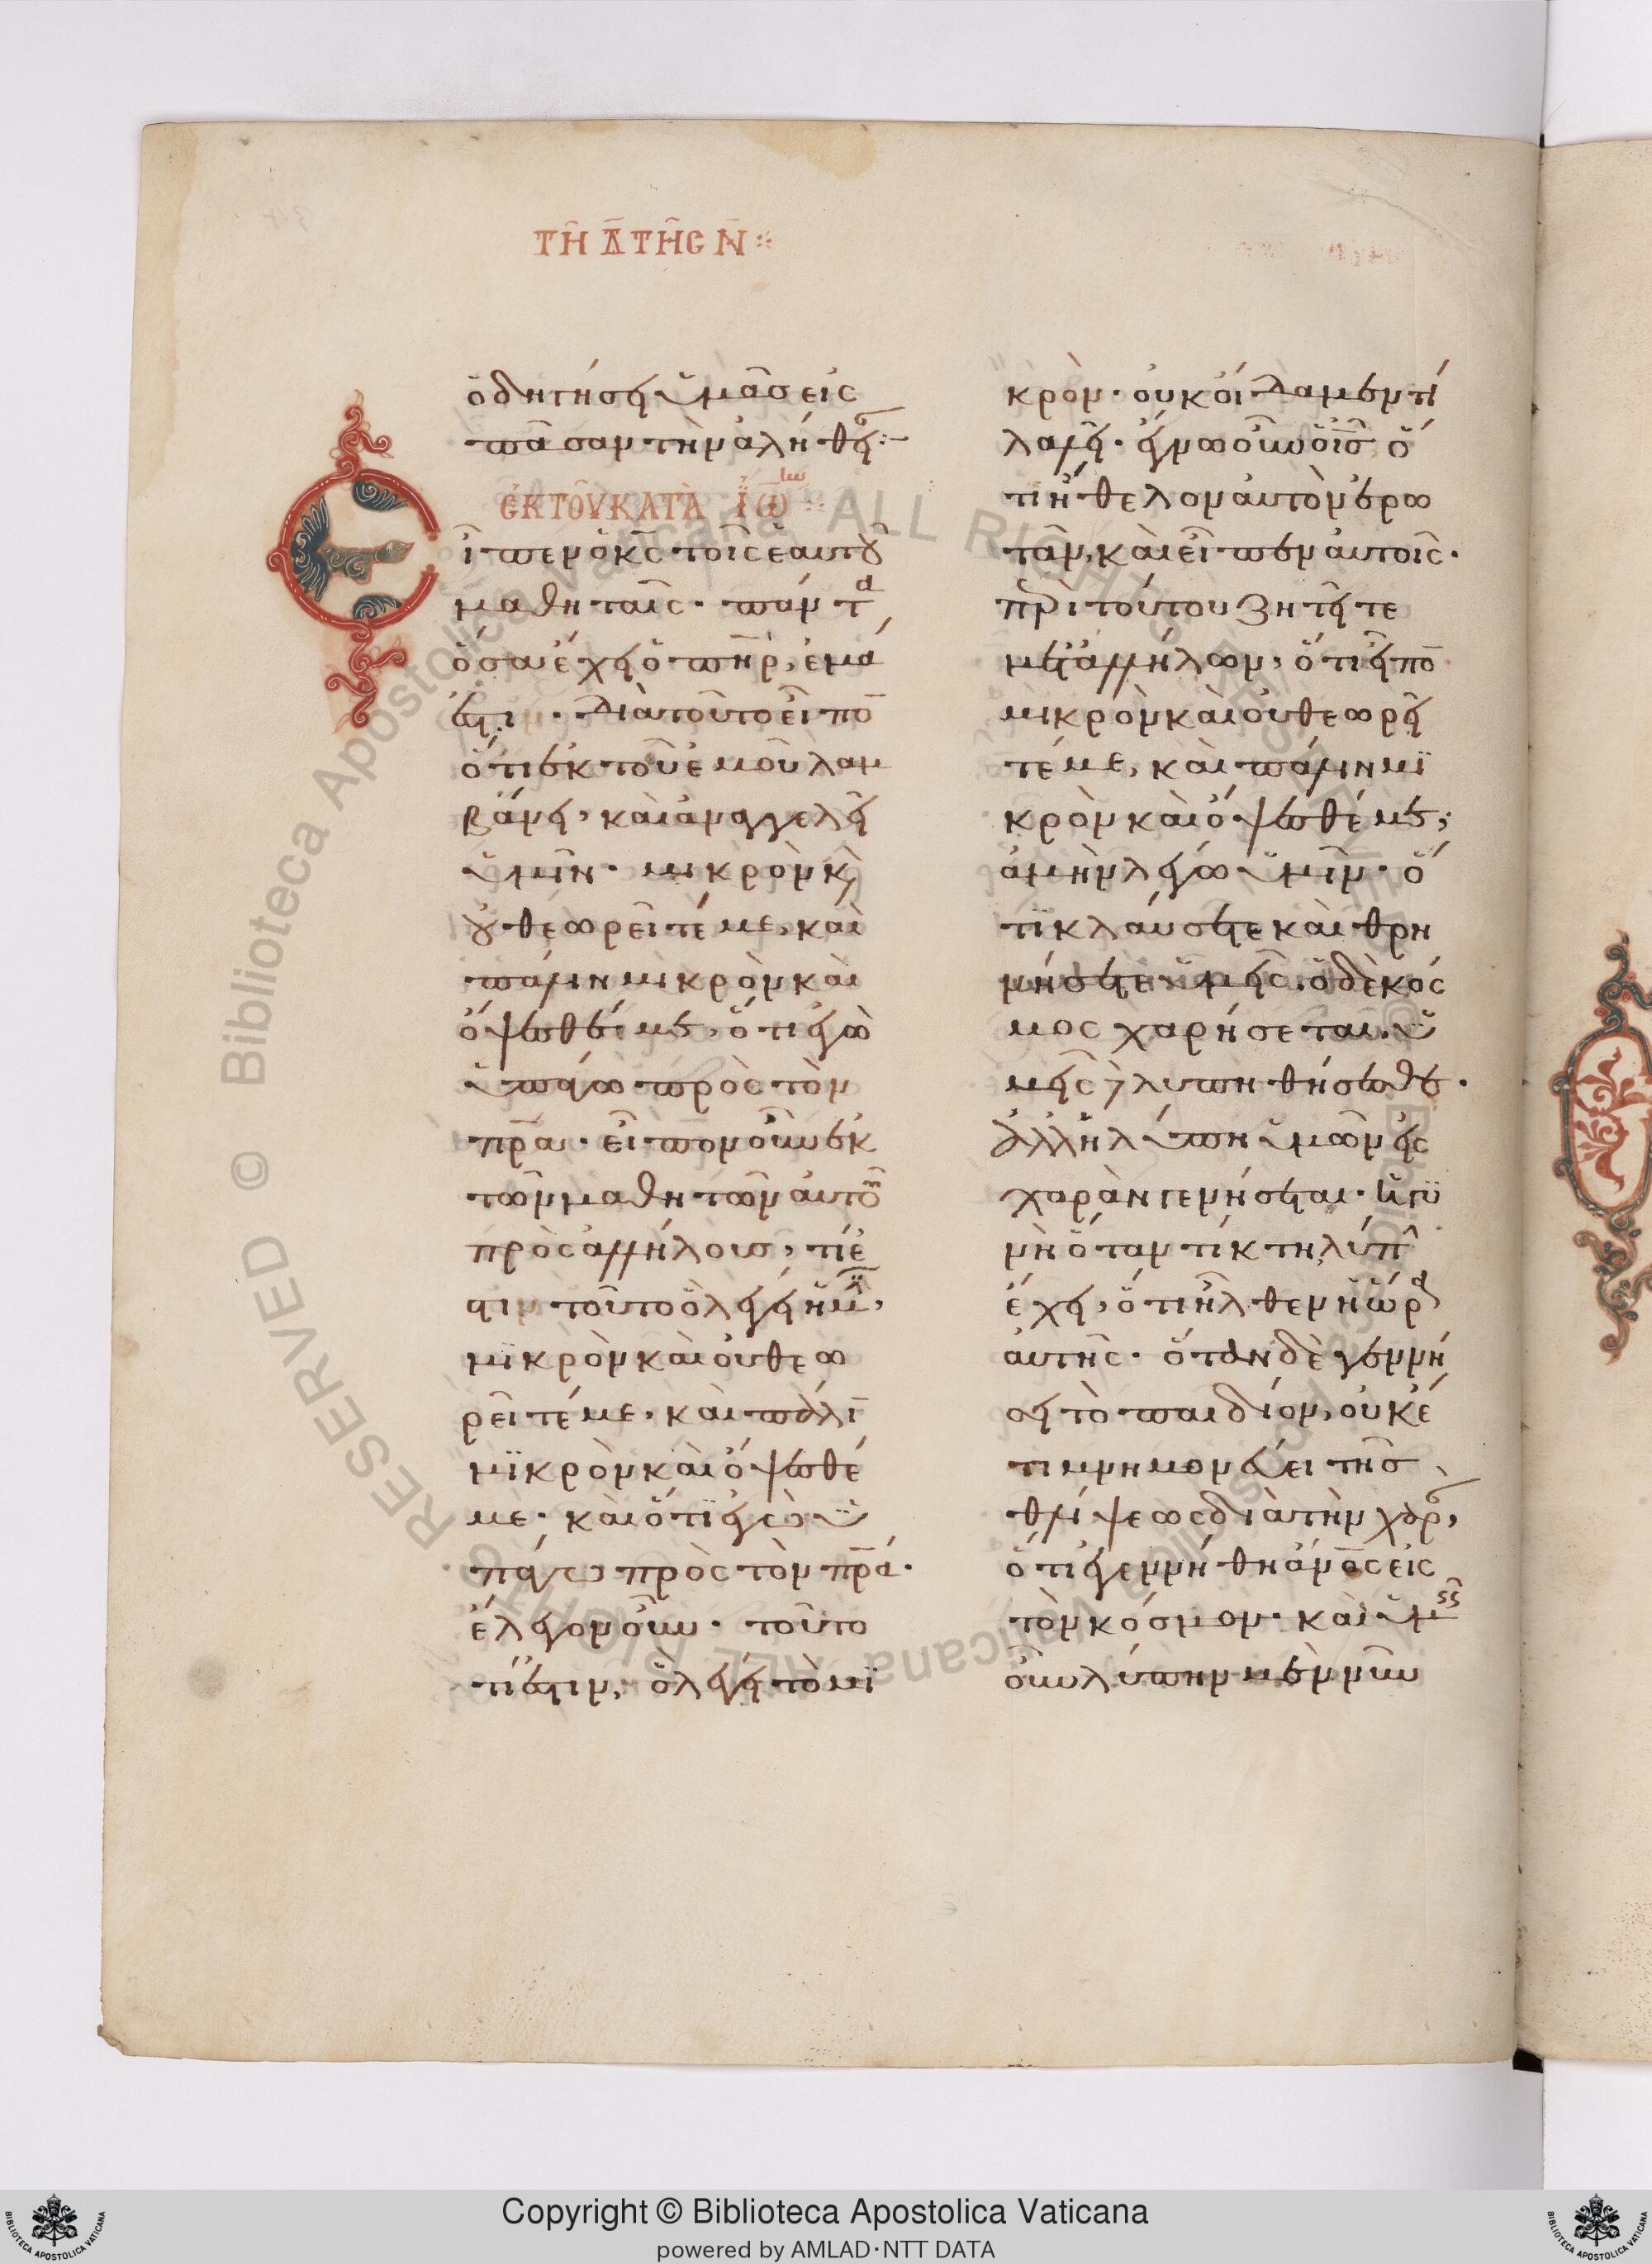 ΤΗ Δ ΤΗϹ Ν
ὁδηγήσει ὑμᾶσ εἰς
πᾶσαν τὴν ἀλήθει
ἐκ τοῦ κατὰ Ἰω
Εἶπεν ὁ κς τοῖς ἑαυτοῦ
μαθηταῖς· πάντα
ὅσα ἔχει ὁ πηρ, ἐμά
ἐστι· διὰ τοῦτο εἶπο
ὅτι ἐκ τοῦ ἐμοῦ λαμ
βάνει, καὶ ἀναγγελεῖ
ὑμῖν· μικρὸν κὶ
οὐ θεωρεῖτέ με, καὶ
πάλιν μικρὸν καὶ
ὄψεσθέ με, ὅτι ἐγὼ
ὑπάγω πρὸς τὸν
πρα· εἶπον οὖν ἐκ
τῶν μαθητῶν αὐτοῦ
πρὸς ἀλλήλουσ, τί ἐ
στιν τοῦτο ὃ λέγει ἡμ,
μϊκρὸν καὶ οὐ θεω
ρεῖτέ με, καὶ πάλι
μϊκρὸν καὶ ὄψεσθέ
με· καὶ ὅτϊ ἐγὼ ὑ
πάγω πρὸς τὸν πρά·
ἔλεγον οὖν· τοῦτο
τί ἐστιν, ὃ λέγει τὸ μϊ
κρὸν· οὐκ οἴδαμεν τί
λαλεῖ· ἔγνω οὖν ὁ ισ ὅ
τι ἤθελον αὐτὸν ἐρω
τᾶν, καὶ εἶπεν αὐτοῖς·
περὶ τούτου ζητεῖτε
μετ ἀλλήλων, ὅτι εἶπο
μικρὸν καὶ οὐ θεωρεῖ
τέ με, καὶ πάλιν μϊ
κρὸν καὶ ὄψεσθέ με;
ἀμὴν λέγω ὑμῖν· ὅ
τϊ κλαύσετε καὶ θρη
νήσετε ὑμεῖς, ὁ δὲ κόσ
μος χαρήσεται, ὑ
μεῖς δὲ λυπηθήσεσθε·
ἀλλ ἡ λύπη ὑμῶν εἰς
χαρὰν γενήσεται· ἡ γϋ
νὴ ὅταν τίκτη, λύπ
ἔχει, ὅτι ἦλθεν ἡ ὥρα
αὐτῆς· ὅταν δὲ γεννή
ση τὸ παιδίον, οὐκέ
τι μνημονεύει τῆσ
θλίψεως διὰ τὴν χαρ,
ὅτι ἐγεννήθη ἄνος εἰς
τὸν κόσμον· καὶ ὑμεῖς
οὖν λύπην μὲν νῦν
Copyright © Biblioteca Apostolica Vaticana
powered by AMLAD·NTT DATA